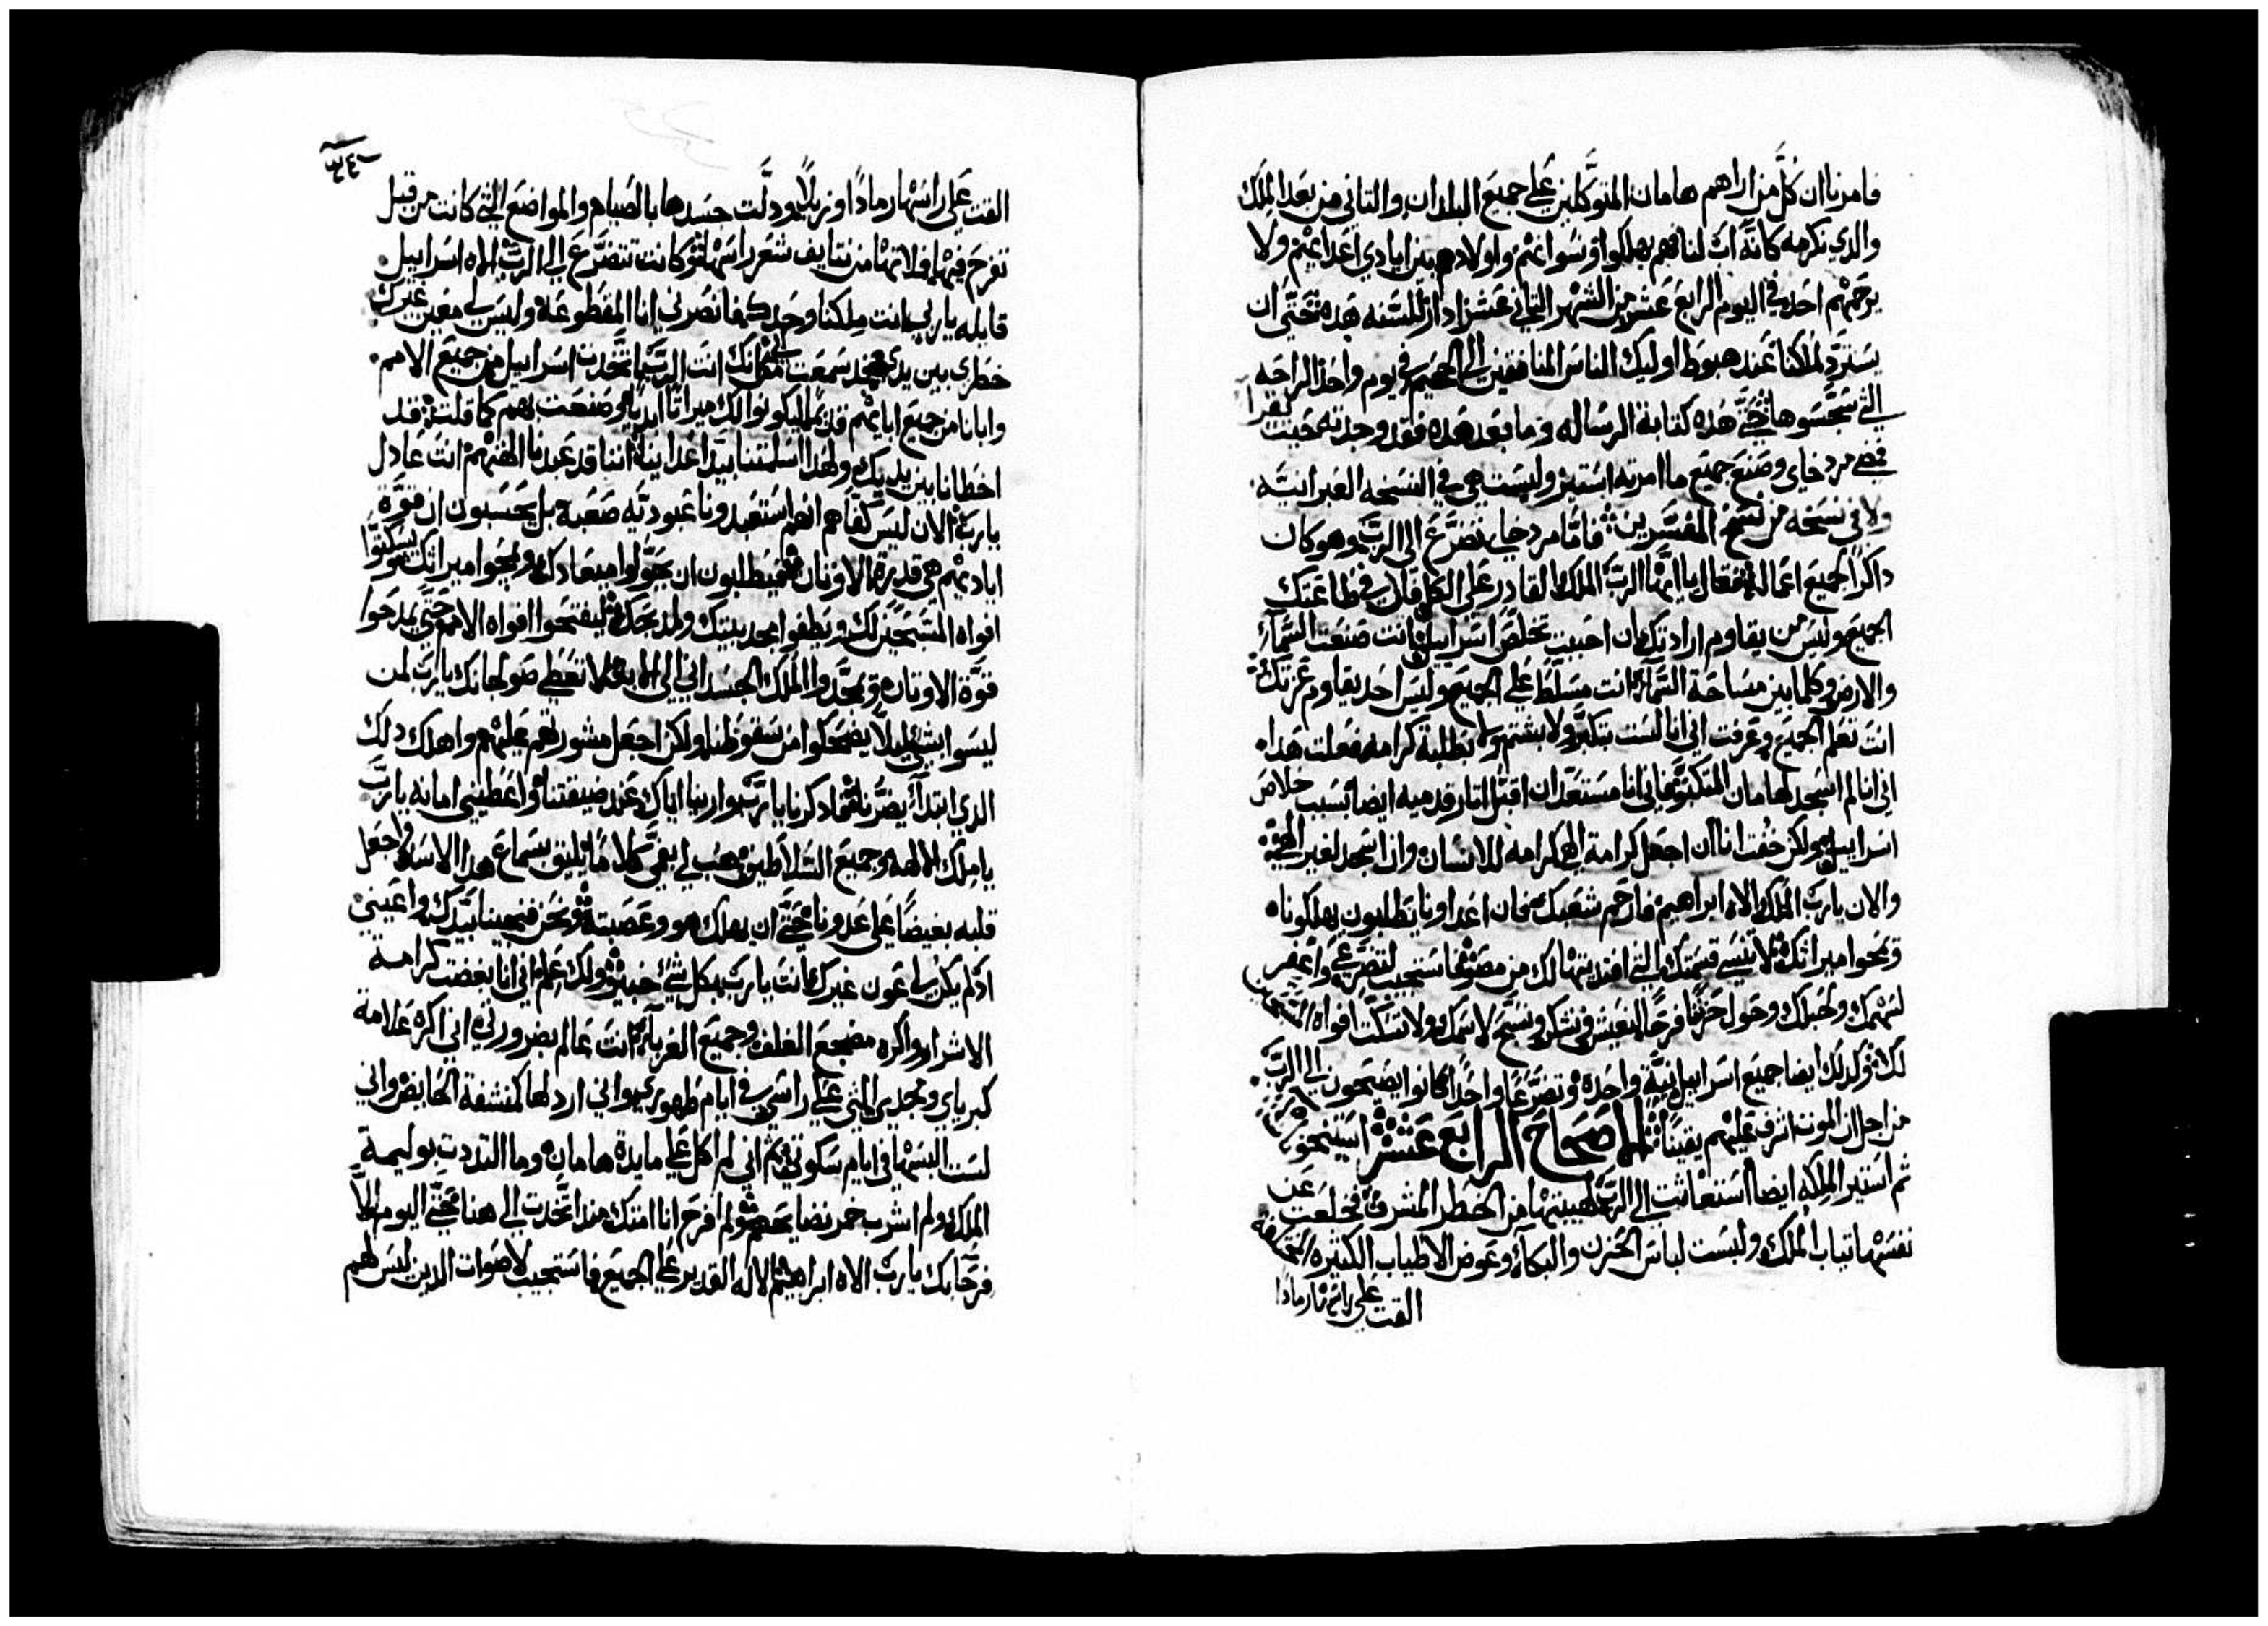 فامرنا ان كل من اراهم هامان المتوكلين على جميع البلدان والتاني من بعد الملك
والدي نكرمه كانه اب لنا فهم يهلكوا ونسوانهم واولادهم من ايادي اعدايهم ولا
يرحمهم احد في اليوم الرابع عشر من الشهر التاني عشر ادار للسنه هده حتى ان
يسترد لملكنا عند هبوط اوليك الناس المنافقين الى الجحيم في يوم واحد الراحه
التي سجسوها حتى هده كتابة الرساله وما بعد هده فقد وجدته حيث نقرا
فمضى مردخاي وصنع جميع ما امرته استير وليست هي في النسخه العبرانيه
ولا في نسخه من نسخ المفسرين فاما مردخاي تضرع الى الرب وهو كان
داكرا لجميع اعماله فقال يا ايها الرب الملك القادر على الكل لان في طاعتك
الجميع وليس من يقاوم ارادتك ان احببت تخلص اسراييل انت صنعت السماء
والارض وكلما بين مساحة السماء انت مسلط على الجميع وليس احد يقاوم عزتك
انت تعلم الجميع وعرفت اني انا لست بتكبر ولا بشتم ولا بطلبة كرامه فعلت هدا
اني انا لم اسجد لهامان المتكبر فاني انا مستعد ان اقبل اتار قدميه ايضا بسبب خلاص
اسراييل ولكن خفت انا ان اجعل كرامة الهي كرامه للانسان وان اسجد لغير الهي
والان يا رب الملك الاه ابراهيم فارحم شعبك فان اعداونا يطلبون يهلكوناه
ويمحوا ميراتك لا تنسى قسمتك التي افتديتها لك من مصر فاستجيب لتضرعي واغفر
لسهمك ولحبلك وحول حزننا فرحا لنعيش ونشكر ونسبح لاسمك ولا تسكت افواه المسبحين
لك وكدلك ايضا جميع اسراييل بنية واحده وتضرعا واحدا كانوا يصيحون الى الرب
من اجل ان الموت اشرف عليهم يقينا الاصحاح الرابع عشر
تم استير الملكه ايضا استغاتت الى الرب لهيبتها من الخطر المشرف فخلعت عن
نفسها تياب الملك ولبست لباس الحزن والبكاء وعوض الاطياب الكتيره المختلفه
القت على راسها رمادا
٣٤٠
القت على راسها رمادا وزبلا ودلت جسدها بالصيام والمواضع التي كانت من قبل
تفرح فيها فلاتها من نتايف شعر راسها وكانت تتضرع الى الرب الاه اسراييل
قايله يا رب انت ملكنا وحدك فانصرني انا المقطوعه وليس لي معين غيرك
خطري بين يدي قد سمعت من انك انت الرب اتخدت اسراييل من جميع الامم
وابانا من جميع ابايهم ليكونوا لك ميراتا ابديا وصنعت بهم كما قلت فقد
اخطانا بين يديك ولهدا اسلمتنا بيد اعداينا اننا قد عبدنا الهتهم انت عادل
يا رب والان ليس كفاهم انهم استعبدونا عبوديه صعبه بل يحسبون ان قوة
اياديهم هي قديرة الاوتان فيطلبون ان يحولوا ميعادك ويمحوا ميراتك ويسكتوا
افواه المسبحين لك ويطفوا مجد بيتك ومدبحك ليفتحوا افواه الامم حتى يمدحوا
قوة الاوتان ويمجدوا الملك الجسداني الى الابد لا تعطي صولجانك يا رب لمن
ليسوا بشي ليلا يضحكوا من سقوطنا ولكن اجعل مشورتهم عليهم واهلك دلك
الدي ابتدا يضرنا ادكرنا يا رب وارينا اياك عند ضيقتنا واعطيني امانه يا رب
يا ملك الالهه وجميع السلاطين هب لي بفمي كلاما يليق بسماع هدا الاسد واجعل
قلبه بغيضا على عدونا حتى ان يهلك هو وعصبته ونحن فنجينا بيدك واعينني
اد لم يكن لي عون غيرك انت يا رب بكل شي خبير ولك علم اني انا بغضت كرامة
الاشرار واكره مضجع الغلف وجميع الغربآء انت عالم بضرورتي اني اكره علامة
كبرياي ومجدي التي على راسي في ايام ظهوري واني اردلها كمنشفة الحايض واني
لست البسها في ايام سكوتي تم اني لم اكل على مايدة هامان وما التددت بوليمة
الملك ولم اشرب خمر نضايحهم ولم افرح انا امتك مند اتخدت الى هنا حتى اليوم الا
فرحا بك يا رب الاه ابراهيم الاله القدير على الجميع فاستجيب لاصوات الدين ليس لهم